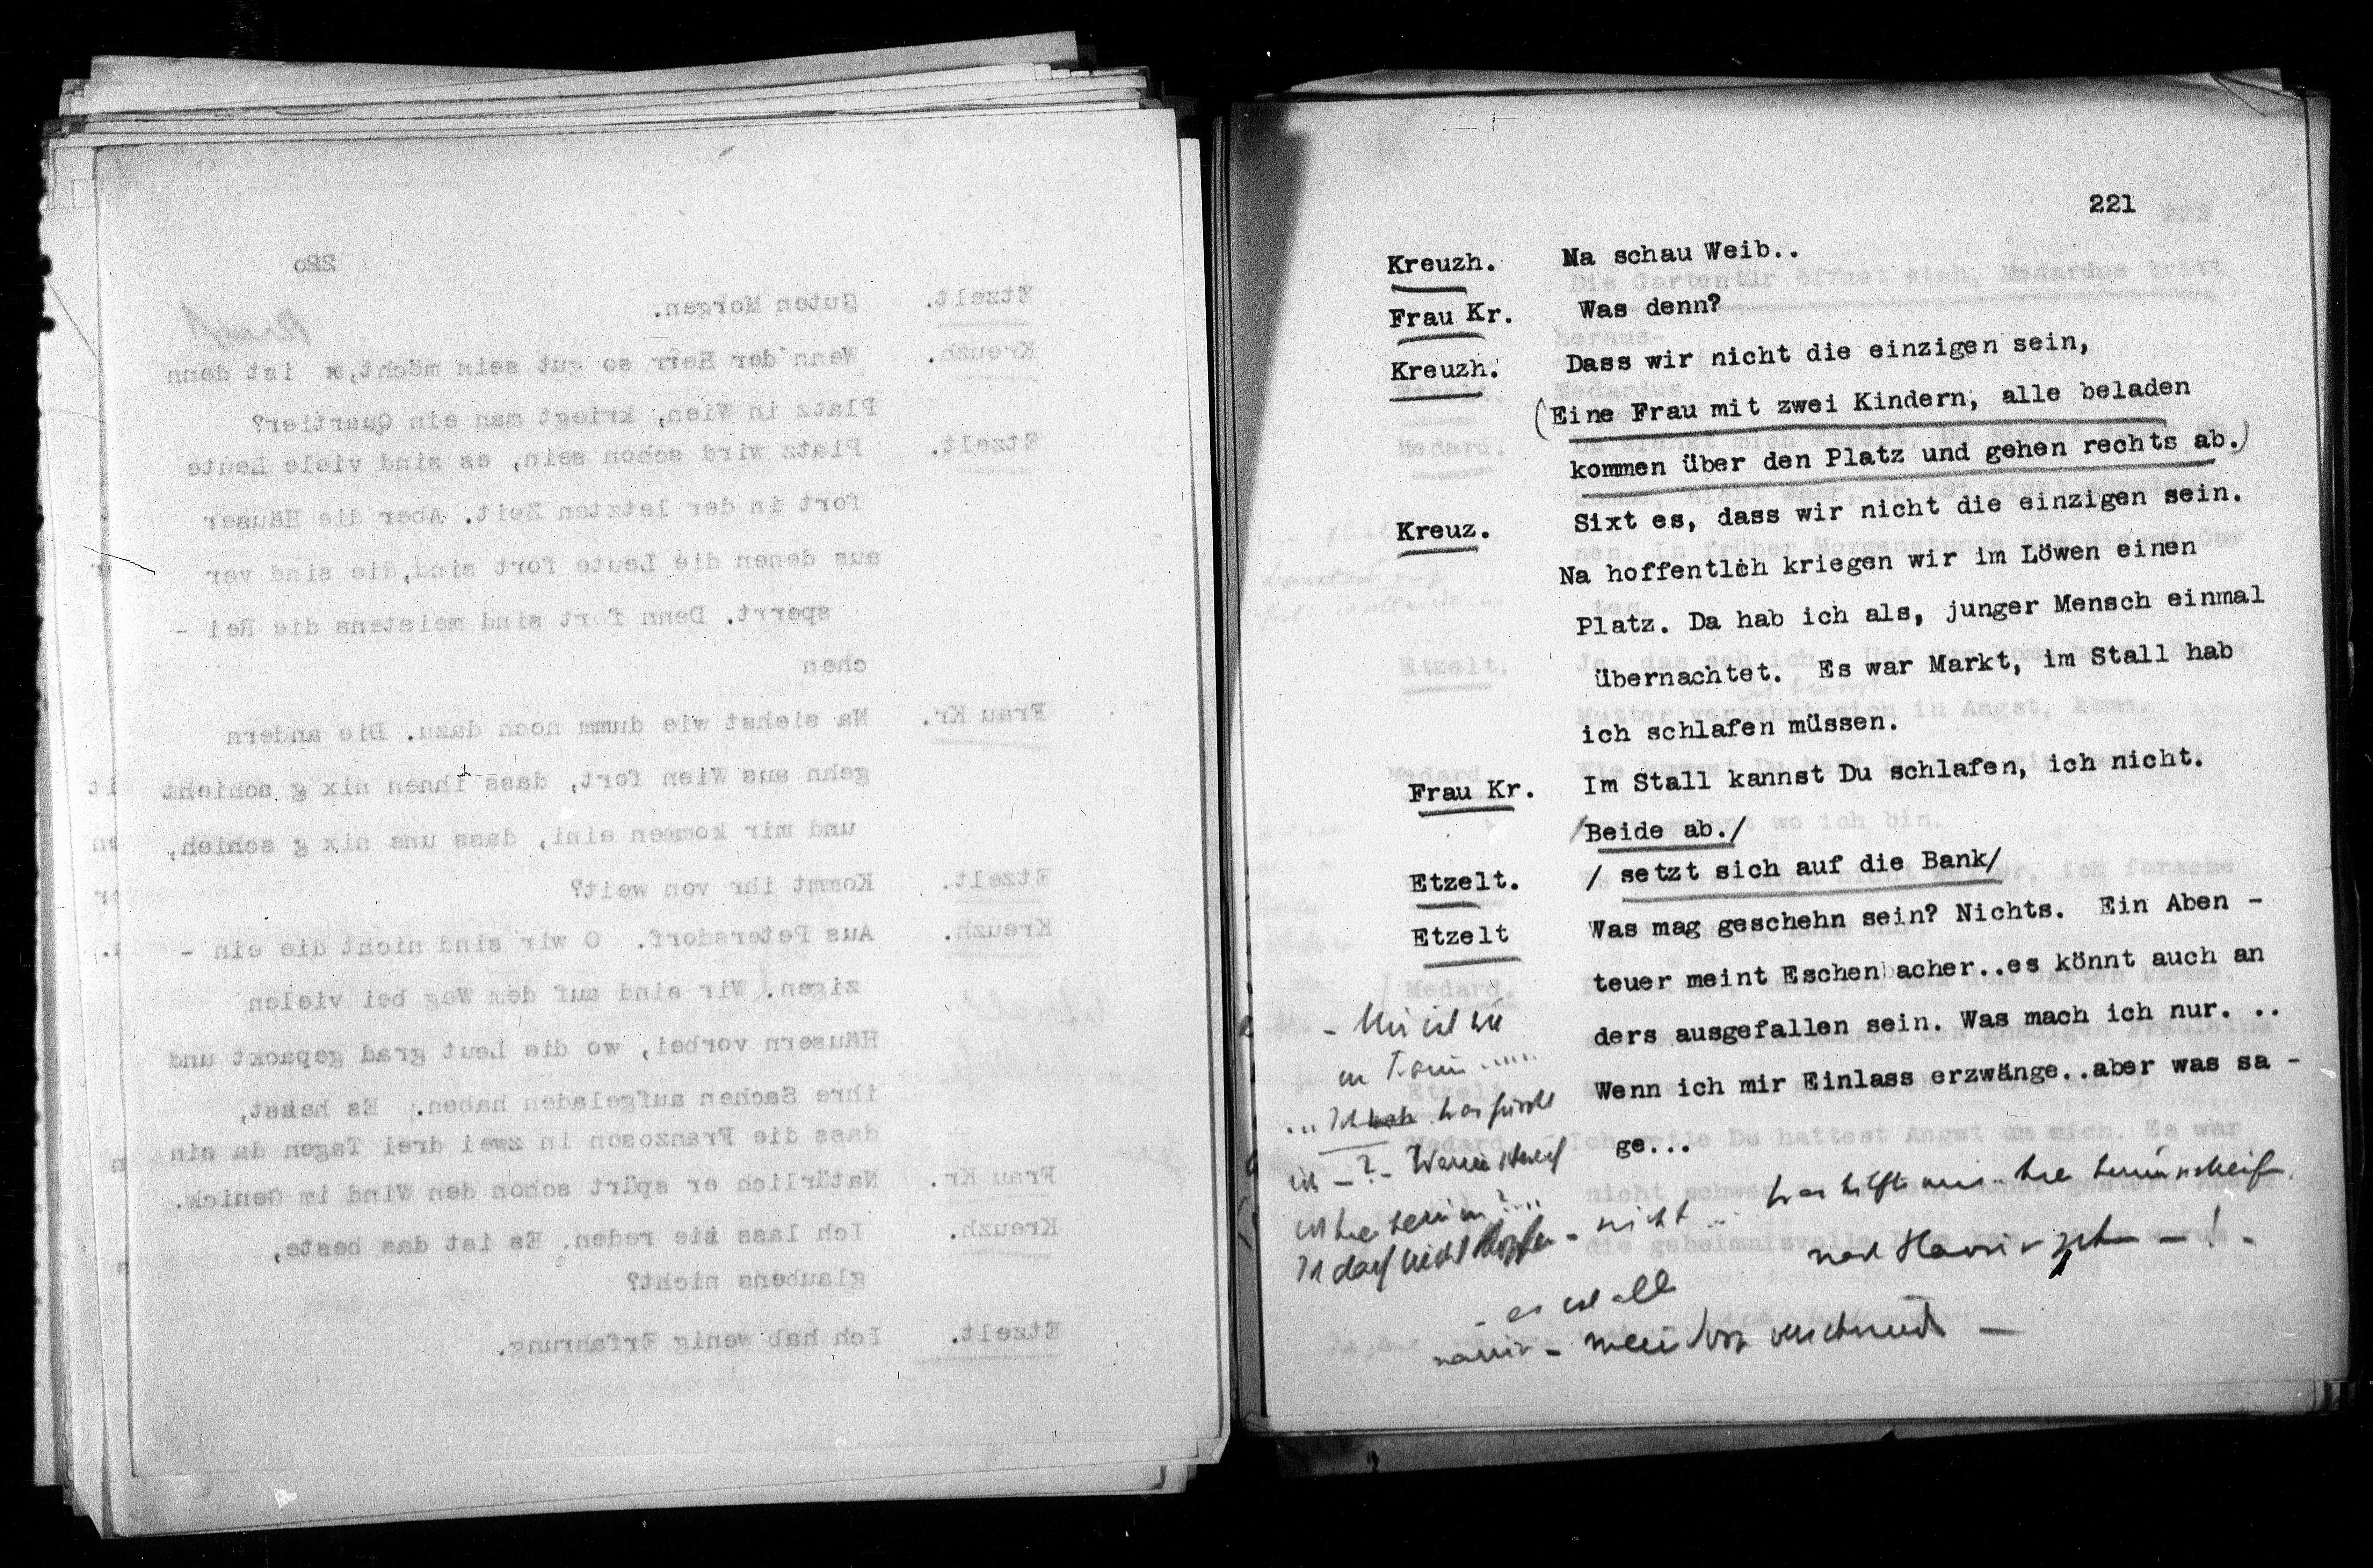 220
Etzelt. Guten Morgen.
Kreuzh. Wenn der Herr so gut sein möcht,x ist denn
Platz in Wien, kriegt man ein Quartier?
Etzelt. Platz wird schon sein, es sind viele Leute
fort in der letzten Zeit. Aber die Häuser
aus denen die Leute fort sind,die sind ver
sperrt. Denn fort sind meistens die Rei -
chen
Frau Kr. Na siehst wie dumm noch dazu. Die andern
gehn aus Wien fort, dass ihnen nix g schieht
und mir kommen eini, dass uns nix g schieh,
Etzelt. Kommt ihr von weit?
Kreuzh. Aus Petersdorf. O wir sind nicht die ein -
zigen. Wir sind auf dem Weg bei vielen
Häusern vorbei, wo die Leut grad gepackt und
ihre Sachen aufgeladen haben. Es heisst,
dass die Franzosen in zwei drei Tagen da sin
Frau Kr. Natürlich er spürt schon den Wind im Genick.
Kreuzh. Ich lass sie reden. Es ist das beste,
glaubens nicht?
Etzelt. Ich hab wenig Erfahrung.
221
Kreuzh. Na schau Weib..
Frau Kr. Was denn?
Kreuzh. Dass wir nicht die einzigen sein,
(Eine Frau mit zwei Kindern, alle beladen
kommen über den Platz und gehen rechts ab.)
Kreuz. Sixt es, dass wir nicht die einzigen sein.
Na hoffentlich kriegen wir im Löwen einen
Platz. Da hab ich als, junger Mensch einmal
übernachtet. Es war Markt, im Stall hab
ich schlafen müssen.
Frau Kr. Im Stall kannst Du schlafen, ich nicht.
/Beide ab./
Etzelt. / setzt sich auf die Bank/
Etzelt Was mag geschehn sein? Nichts. Ein Aben -
teuer meint Eschenbacher..es könnt auch an
ders ausgefallen sein. Was mach ich nur. ..
Wenn ich mir Einlass erzwänge..aber was sa -
ge...
- Mir ist wie
im Traum .....
... Ich was fürchte
ich - ? - Warum
ich hier herum ? ...
Ich darf nicht hoffen - nicht ... was hilft mir hier herumschleif
nach Hause gehn - ! -
- es ist alles